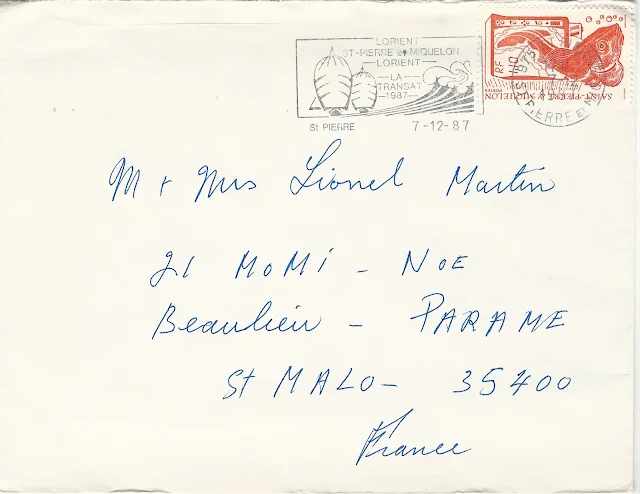 LORIENT
ST-PIERRE et MIQUELON
LORIENT
LA
TRANSAT
1987
St PIERRE 7-12-87
RF
SAINT-PIERRE & MIQUELON
975
PIERRE et
M & Mrs Lionel Martin
21 MOMI - NOE
Beaulieu - PARAME
St MALO - 35400
France